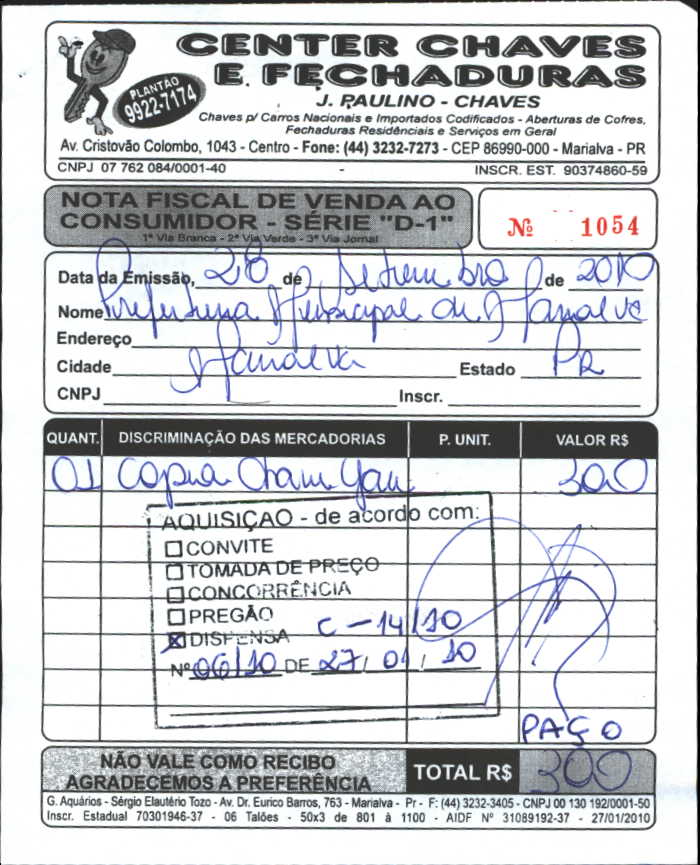 CENTER CHAVES
E. FECHADURAS
PLANTÃO
9922-7174
J. PAULINO - CHAVES
Chaves p/ Carros Nacionais e Importados Codificados - Aberturas de Cofres,
Fechaduras Residênciais e Serviços em Geral
Av. Cristovão Colombo, 1043 - Centro - Fone: (44) 3232-7273 - CEP 86990-000 - Marialva - PR
CNPJ 07 762 084/0001-40 INSCR. EST. 90374860-59
NOTA FISCAL DE VENDA AO
CONSUMIDOR - SÉRIE "D-1"
1ª Via Branca - 2ª Via Verde - 3ª Via Jornal
Nº 1054
Data da Emissão, 28 de Setembro de 2010
Nome Prefeitura Municipal de Marialva
Endereço
Cidade Marialva Estado PR
CNPJ Inscr.
QUANT. DISCRIMINAÇÃO DAS MERCADORIAS P. UNIT. VALOR R$
01 Copia Chave Yale 300
AQUISIÇAO - de acordo com:
CONVITE
TOMADA DE PREÇO
CONCORRÊNCIA
PREGÃO
C-14/10
DISPENSA
Nº 06/10 DE 27/01/10
PAGO
NÃO VALE COMO RECIBO
AGRADECEMOS A PREFERÊNCIA
TOTAL R$ 300
G. Aquários - Sérgio Elautério Tozo - Av. Dr. Eurico Barros, 763 - Marialva - Pr - F: (44) 3232-3405 - CNPJ 00 130 192/0001-50
Inscr. Estadual 70301946-37 - 06 Talões - 50x3 de 801 à 1100 - AIDF Nº 31089192-37 - 27/01/2010